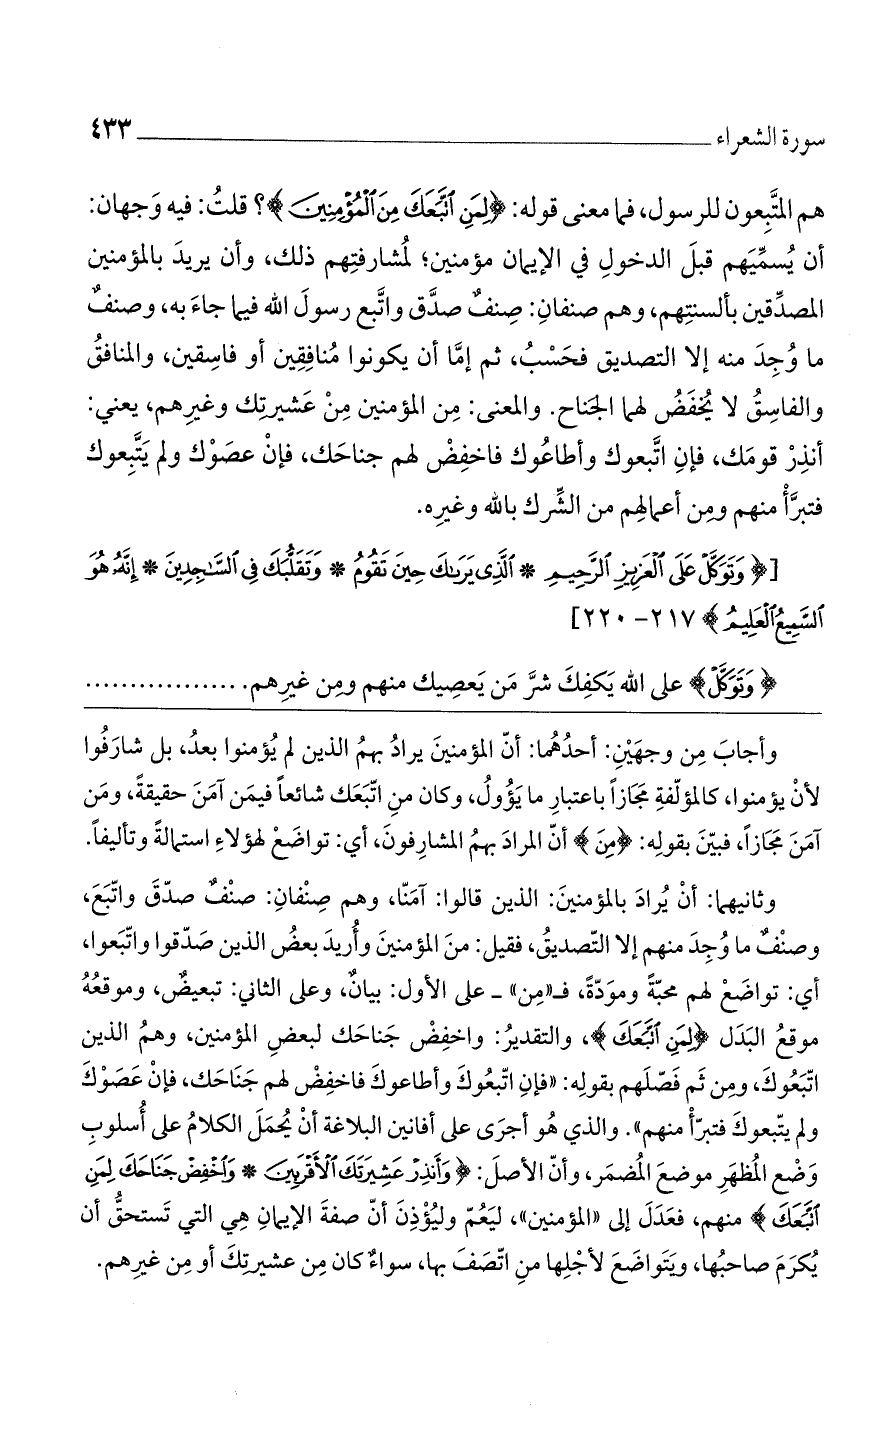 سورة الشعراء ٤٣٣
هم المتَّبِعون للرسول، فما معنى قوله: ﴿لِمَنِ ٱتَّبَعَكَ مِنَ ٱلْمُؤْمِنِينَ﴾؟ قلتُ: فيه وَجهان:
أن يُسمِّيَهم قبلَ الدخولِ في الإيمان مؤمنين؛ لمُشارفتِهم ذلك، وأن يريدَ بالمؤمنين
المصدِّقين بألسنتِهم، وهم صنفان: صِنفٌ صدَّق واتَّبع رسولَ الله فيما جاءَ به، وصنفٌ
ما وُجِدَ منه إلا التصديق فحَسْبُ، ثم إمَّا أن يكونوا مُنافِقِين أو فاسِقين، والمنافقُ
والفاسِقُ لا يُخفَضُ لهما الجَناح. والمعنى: مِن المؤمنين مِنْ عَشيرتِك وغيرِهم، يعني:
أنذِرْ قومَك، فإنِ اتَّبعوك وأطاعُوك فاخفِضْ لهم جناحَك، فإنْ عصَوْك ولم يَتَّبِعوك
فتبرَّأْ منهم ومِن أعمالِهم من الشِّرك بالله وغيرِه.
[﴿وَتَوَكَّلْ عَلَى ٱلْعَزِيزِ ٱلرَّحِيمِ * ٱلَّذِى يَرَىٰكَ حِينَ تَقُومُ * وَتَقَلُّبَكَ فِى ٱلسَّٰجِدِينَ * إِنَّهُۥ هُوَ
ٱلسَّمِيعُ ٱلْعَلِيمُ﴾ ٢١٧ – ٢٢٠]
﴿وَتَوَكَّلْ﴾ على الله يَكفِكَ شرَّ مَن يَعصِيك منهم ومِن غيرِهم. ................
وأجابَ مِن وجهَيْنِ: أحدُهُما: أنّ المؤمنينَ يرادُ بهمُ الذين لم يُؤمنوا بعدُ، بل شارَفُوا
لأنْ يؤمنوا، كالمؤلّفةِ مَجَازاً باعتبارِ ما يَؤُولُ، وكان منِ اتّبَعَك شائعاً فيمَن آمَنَ حقيقةً، ومَن
آمَنَ مَجَازاً، فبيّنَ بقولِه: ﴿مِنَ﴾ أنّ المرادَ بهمُ المشارِفونَ، أي: تواضَعْ لهؤلاءِ استمالةً وتأليفاً.
وثانيهما: أنْ يُرادَ بالمؤمنينَ: الذين قالوا: آمَنّا، وهم صِنْفانِ: صنْفٌ صدّقَ واتّبَعَ،
وصنْفٌ ما وُجِدَ منهم إلا التّصديقُ، فقيل: منَ المؤمنينَ وأُريدَ بعضُ الذين صَدّقوا واتّبَعوا،
أي: تواضَعْ لهم محبّةً وموَدّةً، فـ«مِن» - على الأول: بيانٌ، وعلى الثاني: تبعيضٌ، وموقعُهُ
موقعُ البَدَل ﴿لِمَنِ ٱتَّبَعَكَ﴾، والتقديرُ: واخفِضْ جَناحَك لبعضِ المؤمنين، وهمُ الذين
اتّبَعُوكَ، ومِن ثَم فَصّلَهم بقولِه: «فإنِ اتّبعُوكَ وأطاعوكَ فاخفِضْ لهم جَنَاحَك، فإنْ عَصَوْكَ
ولم يتّبعوكَ فتبرّأْ منهم». والذي هُو أجرَى على أفانين البلاغة أنْ يُحمَلَ الكلامُ على أُسلوبِ
وَضْعِ المُظهَرِ موضعَ المُضمَر، وأنّ الأصلَ: ﴿وَأَنذِرْ عَشِيرَتَكَ ٱلْأَقْرَبِينَ * وَٱخْفِضْ جَنَاحَكَ لِمَنِ
ٱتَّبَعَكَ﴾ منهم، فعَدَلَ إلى «المؤمنين»، ليَعُمّ وليُؤْذِنَ أنّ صفةَ الإيمانِ هِي التي تَستحقُّ أن
يُكرَمَ صاحبُها، ويَتَواضَعَ لأجْلِها منِ اتّصَفَ بها، سواءٌ كان مِن عشيرتِكَ أو مِن غيرِهم.